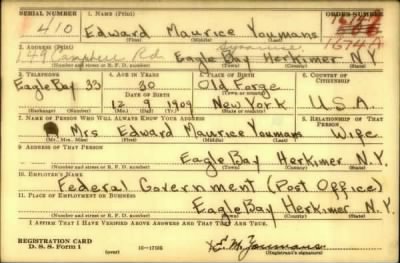 SERIAL NUMBER 1. NAME (Print) ORDER NUMBER
410 Edward Maurice Youmans
(First) (Middle) (Last)
2. ADDRESS (Print) Syracuse
Campbell Rd Eagle Bay Herkimer N.Y.
(Number and street or R. F. D. number) (Town) (County) (State)
3. TELEPHONE 4. AGE IN YEARS 5. PLACE OF BIRTH 6. COUNTRY OF CITIZENSHIP
Eagle Bay 33 30 Old Forge
DATE OF BIRTH (Town or county)
12 9 1909 New York U.S.A.
(Exchange) (Number) (Mo.) (Day) (Yr.) (State or country)
7. NAME OF PERSON WHO WILL ALWAYS KNOW YOUR ADDRESS 8. RELATIONSHIP OF THAT PERSON
Mrs Edward Maurice Youmans Wife
(Mr., Mrs., Miss) (First) (Middle) (Last)
9. ADDRESS OF THAT PERSON
Eagle Bay Herkimer N.Y.
(Number and street or R. F. D. number) (Town) (County) (State)
10. EMPLOYER'S NAME
Federal Government (Post Office)
11. PLACE OF EMPLOYMENT OR BUSINESS
Eagle Bay Herkimer N.Y.
(Number and street or R. F. D. number) (Town) (County) (State)
I AFFIRM THAT I HAVE VERIFIED ABOVE ANSWERS AND THAT THEY ARE TRUE.
REGISTRATION CARD
D. S. S. Form 1 (over) 16—17105 E. M. Youmans
(Registrant's signature)